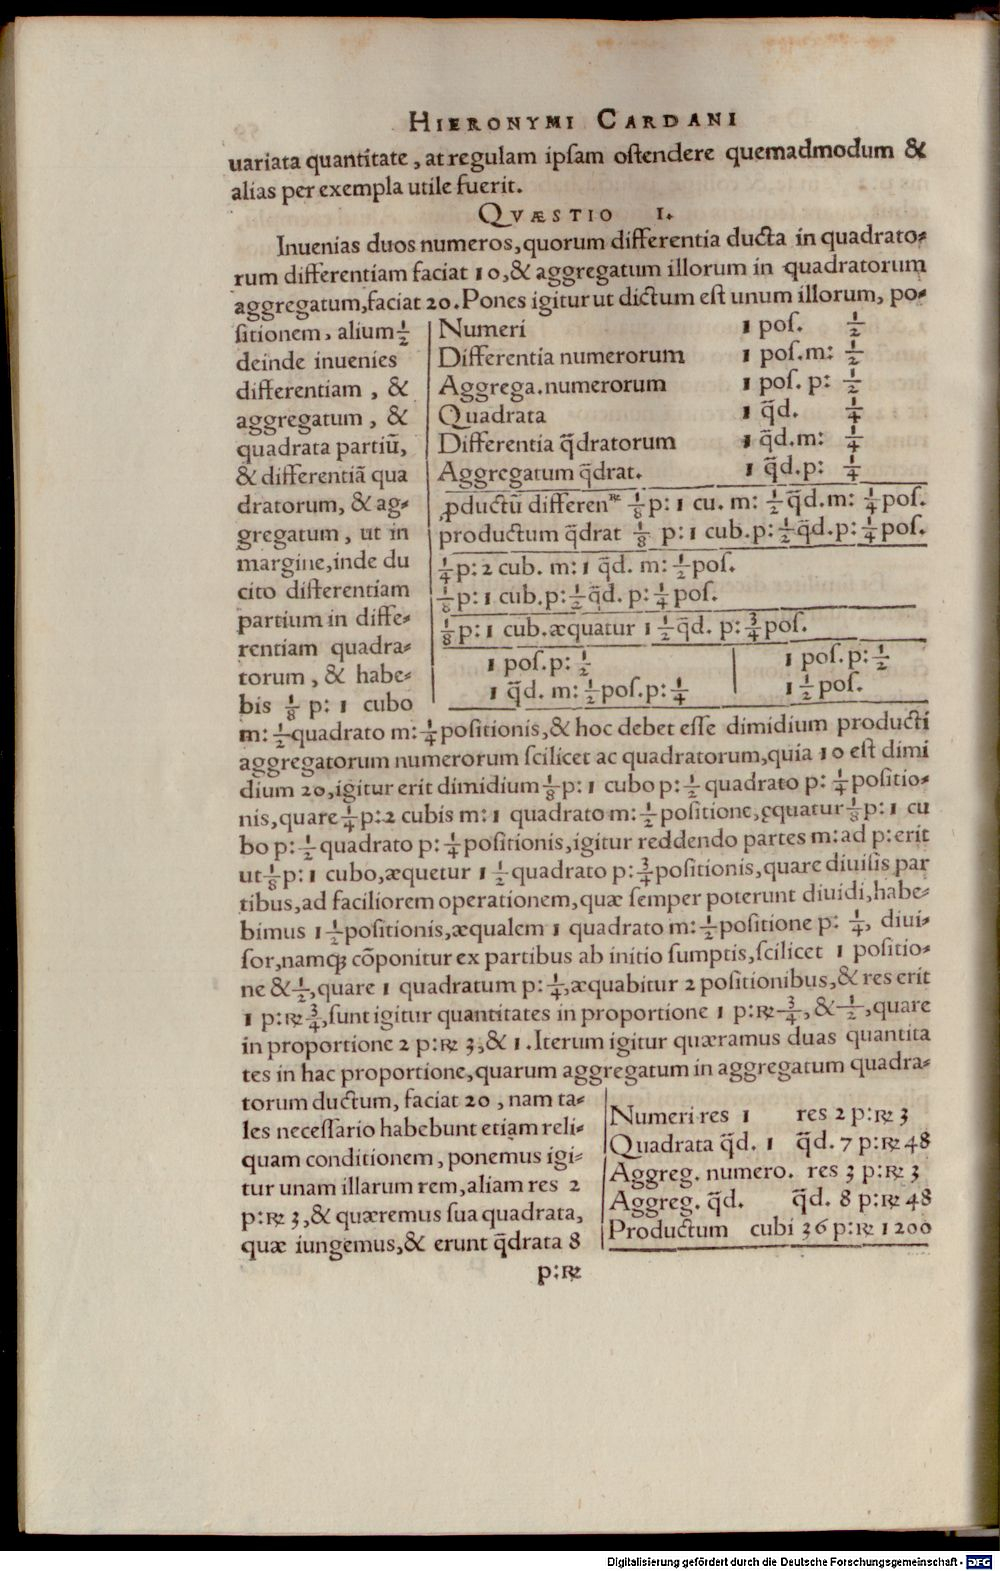 HIERONYMI CARDANI
uariata quantitate, at regulam ipsam ostendere quemadmodum &
alias per exempla utile fuerit.
QVÆSTIO I.
Inuenias duos numeros, quorum differentia ducta in quadrato-
rum differentiam faciat 10, & aggregatum illorum in quadratorum
aggregatum, faciat 20. Pones igitur ut dictum est unum illorum, po-
sitionem, alium ½
deinde inuenies
differentiam, &
aggregatum, &
quadrata partiũ,
& differentiã qua
dratorum, & ag-
gregatum, ut in
margine, inde du
cito differentiam
partium in diffe-
rentiam quadra-
torum, & habe-
bis ⅛ p: 1 cubo
Numeri 1 pos. ½
Differentia numerorum 1 pos. m: ½
Aggrega. numerorum 1 pos. p: ½
Quadrata 1 q̃d. ¼
Differentia q̃dratorum 1 q̃d. m: ¼
Aggregatum q̃drat. 1 q̃d. p: ¼
ꝓductũ differen ⅛ p: 1 cu. m: ½ q̃d. m: ¼ pos.
productum q̃drat ⅛ p: 1 cub. p: ½ q̃d. p: ¼ pos.
¼ p: 2 cub. m: 1 q̃d. m: ½ pos.
⅛ p: 1 cub. p: ½ q̃d. p: ¼ pos.
⅛ p: 1 cub. æquatur 1 ½ q̃d. p: ¾ pos.
1 pos. p: ½ | 1 pos. p: ½
1 q̃d. m: ½ pos. p: ¼ | 1 ½ pos.
m: ½ quadrato m: ¼ positionis, & hoc debet esse dimidium producti
aggregatorum numerorum scilicet ac quadratorum, quia 10 est dimi
dium 20, igitur erit dimidium ⅛ p: 1 cubo p: ½ quadrato p: ¼ positio-
nis, quare ¼ p: 2 cubis m: 1 quadrato m: ½ positione, ęquatur ⅛ p: 1 cu
bo p: ½ quadrato p: ¼ positionis, igitur reddendo partes m: ad p: erit
ut ⅛ p: 1 cubo, æquetur 1 ½ quadrato p: ¾ positionis, quare diuisis par
tibus, ad faciliorem operationem, quæ semper poterunt diuidi, habe-
bimus 1 ½ positionis, æqualem 1 quadrato m: ½ positione p: ¼, diui-
sor, namq; cõponitur ex partibus ab initio sumptis, scilicet 1 positio-
ne & ½, quare 1 quadratum p: ¼, æquabitur 2 positionibus, & res erit
1 p: ℞ ¾, sunt igitur quantitates in proportione 1 p: ℞ ¾, & ½, quare
in proportione 2 p: ℞ 3, & 1. Iterum igitur quæramus duas quantita
tes in hac proportione, quarum aggregatum in aggregatum quadra-
torum ductum, faciat 20, nam ta-
les necessario habebunt etiam reli-
quam conditionem, ponemus igi-
tur unam illarum rem, aliam res 2
p: ℞ 3, & quæremus sua quadrata,
quæ iungemus, & erunt q̃drata 8
Numeri res 1 res 2 p: ℞ 3
Quadrata q̃d. 1 q̃d. 7 p: ℞ 48
Aggreg. numero. res 3 p: ℞ 3
Aggreg. q̃d. q̃d. 8 p: ℞ 48
Productum cubi 36 p: ℞ 1200
p: ℞
Digitalisierung gefördert durch die Deutsche Forschungsgemeinschaft - DFG